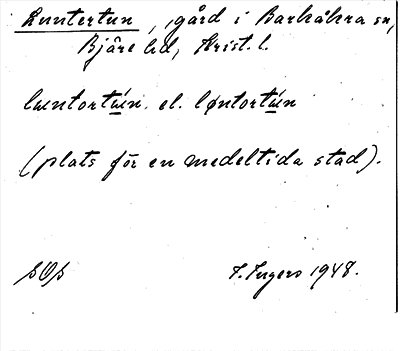 Luntertun, gård i Barkåkra sn,
Bjäre hd, Krist. l.
luntortu̲n. el. løntortu̲n
(plats för en medeltida stad).
1948.